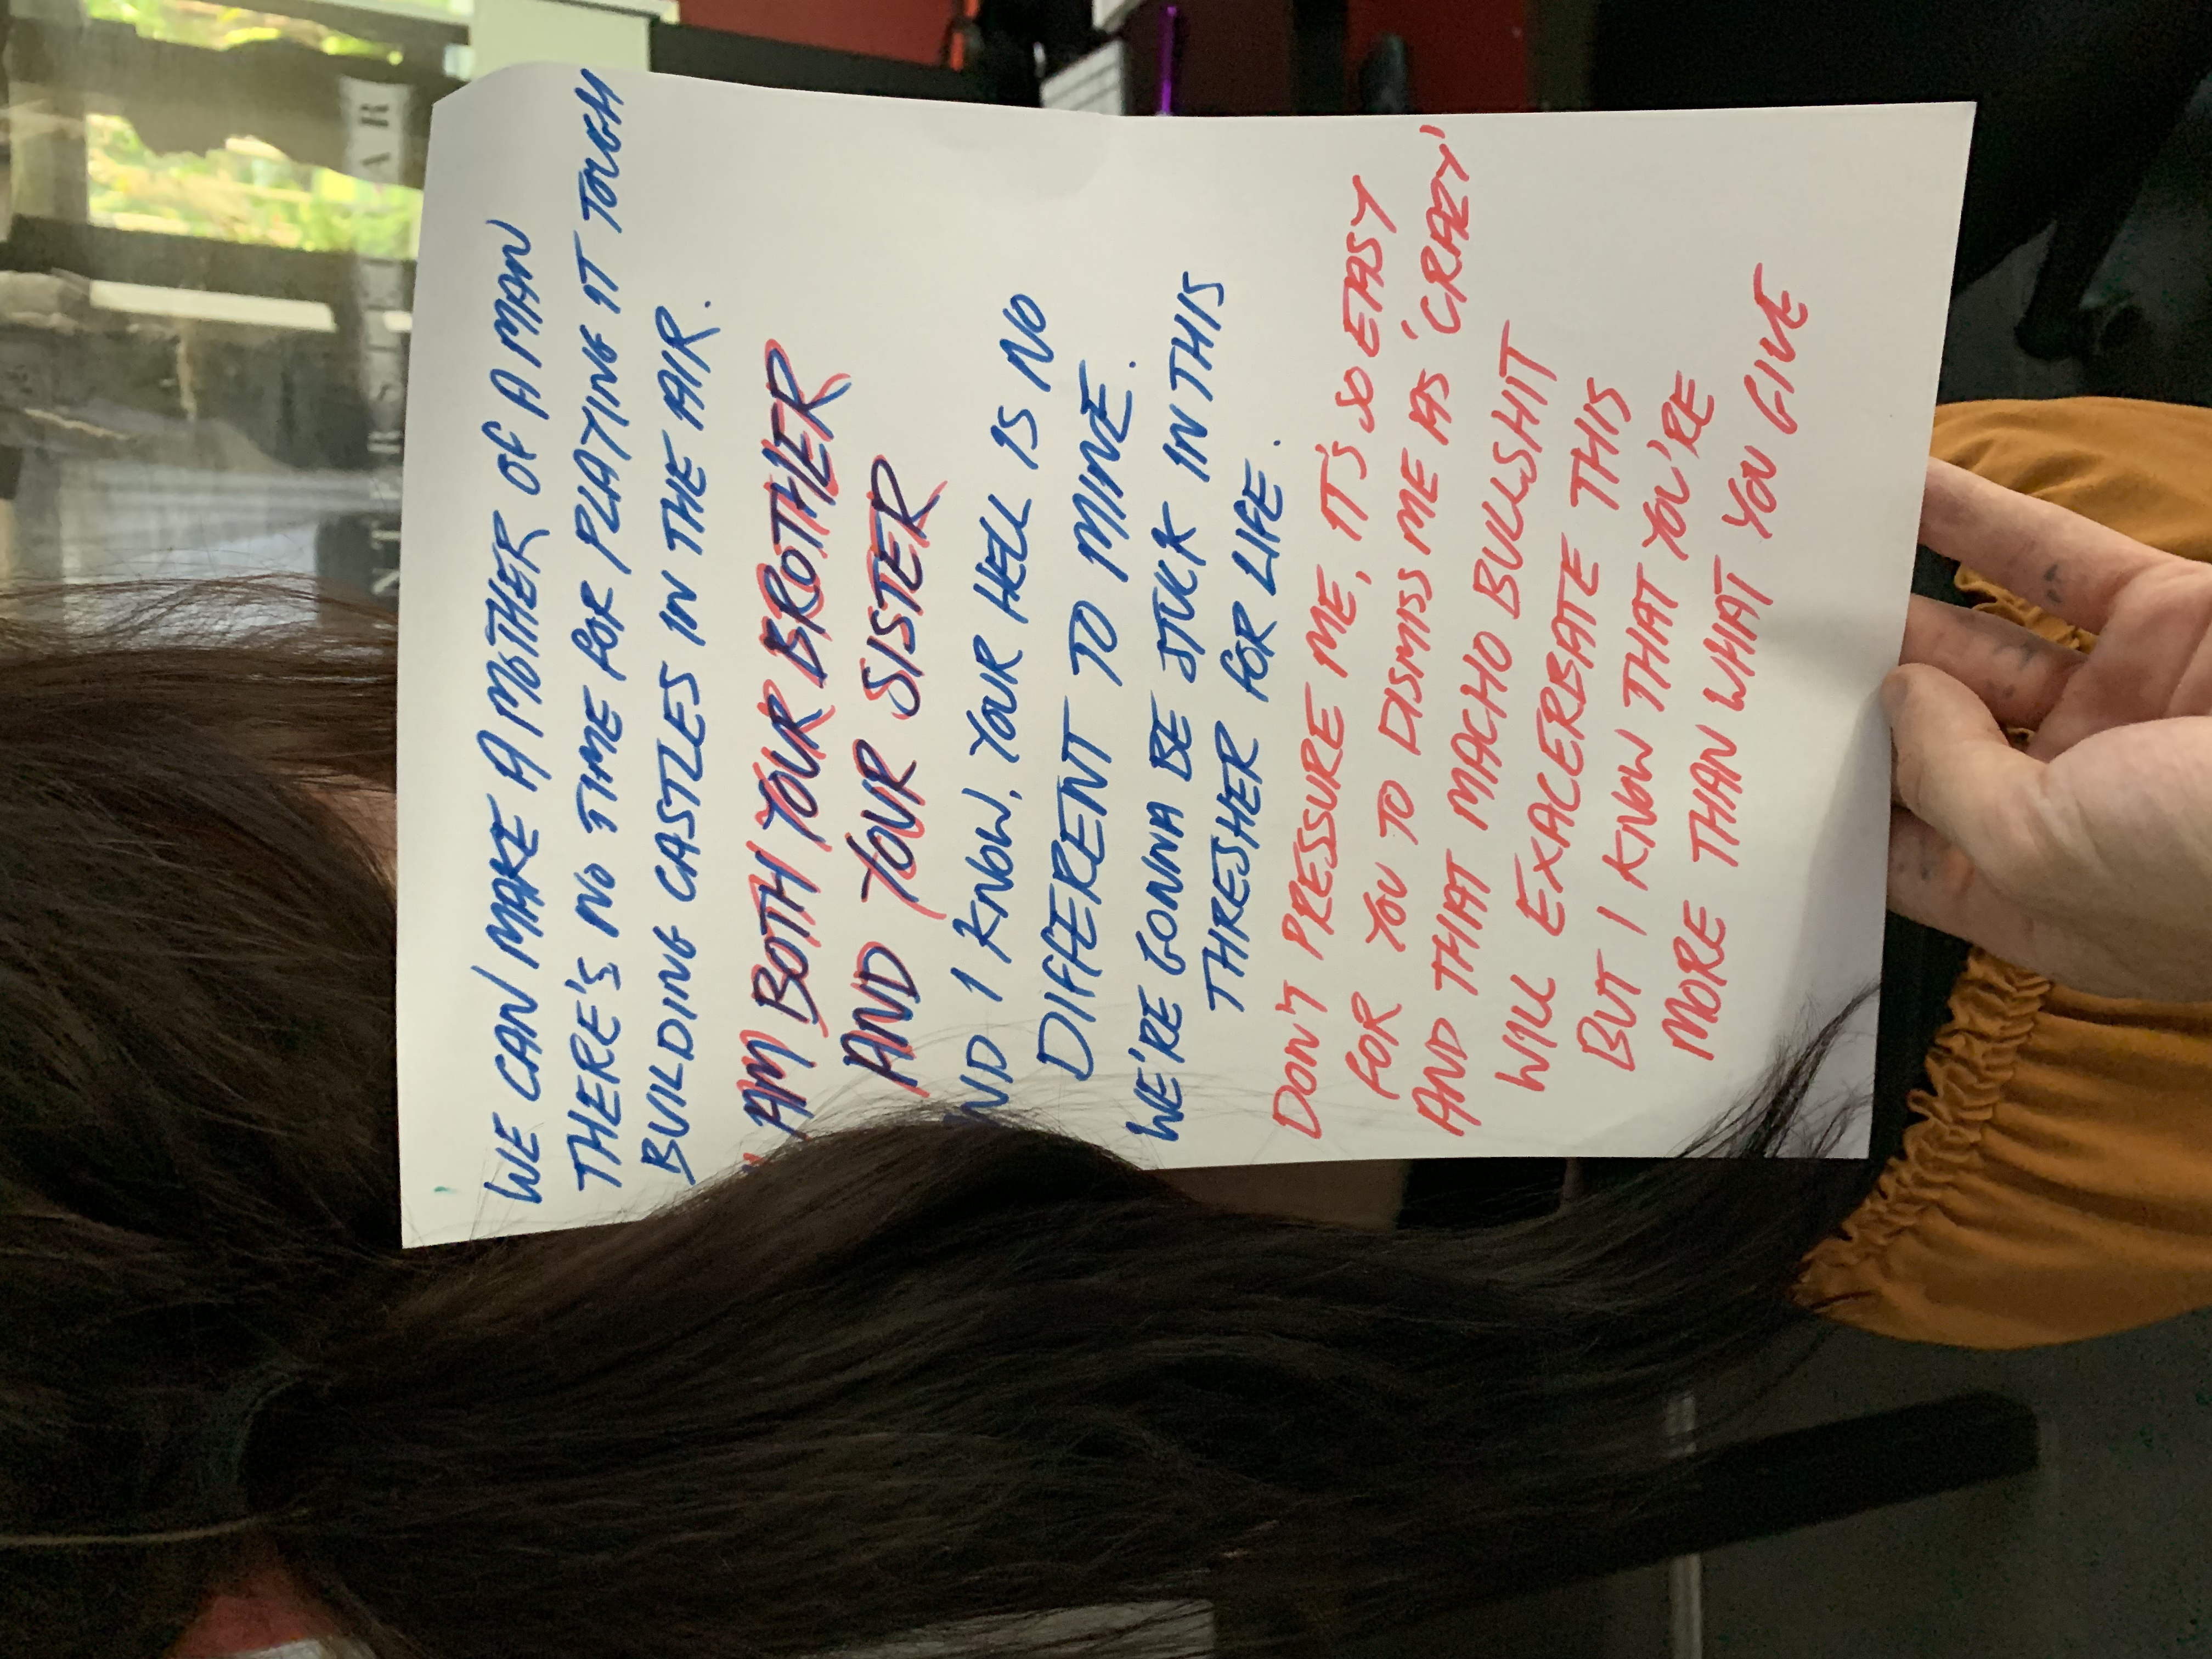 WE CAN MAKE A MOTHER OF A MAN
THERE'S NO TIME FOR PLAYING IT TOUGH
BUILDING CASTLES IN THE AIR.
AM BOTH YOUR BROTHER
AND YOUR SISTER
ND I KNOW, YOUR HELL IS NO
DIFFERENT TO MINE.
WE'RE GONNA BE STUCK IN THIS
THRESHER FOR LIFE.
DON'T PRESSURE ME, IT'S SO EASY
FOR YOU TO DISMISS ME AS 'CRAZY'
AND THAT MACHO BULLSHIT
WILL EXACERBATE THIS
BUT I KNOW THAT YOU'RE
MORE THAN WHAT YOU GIVE